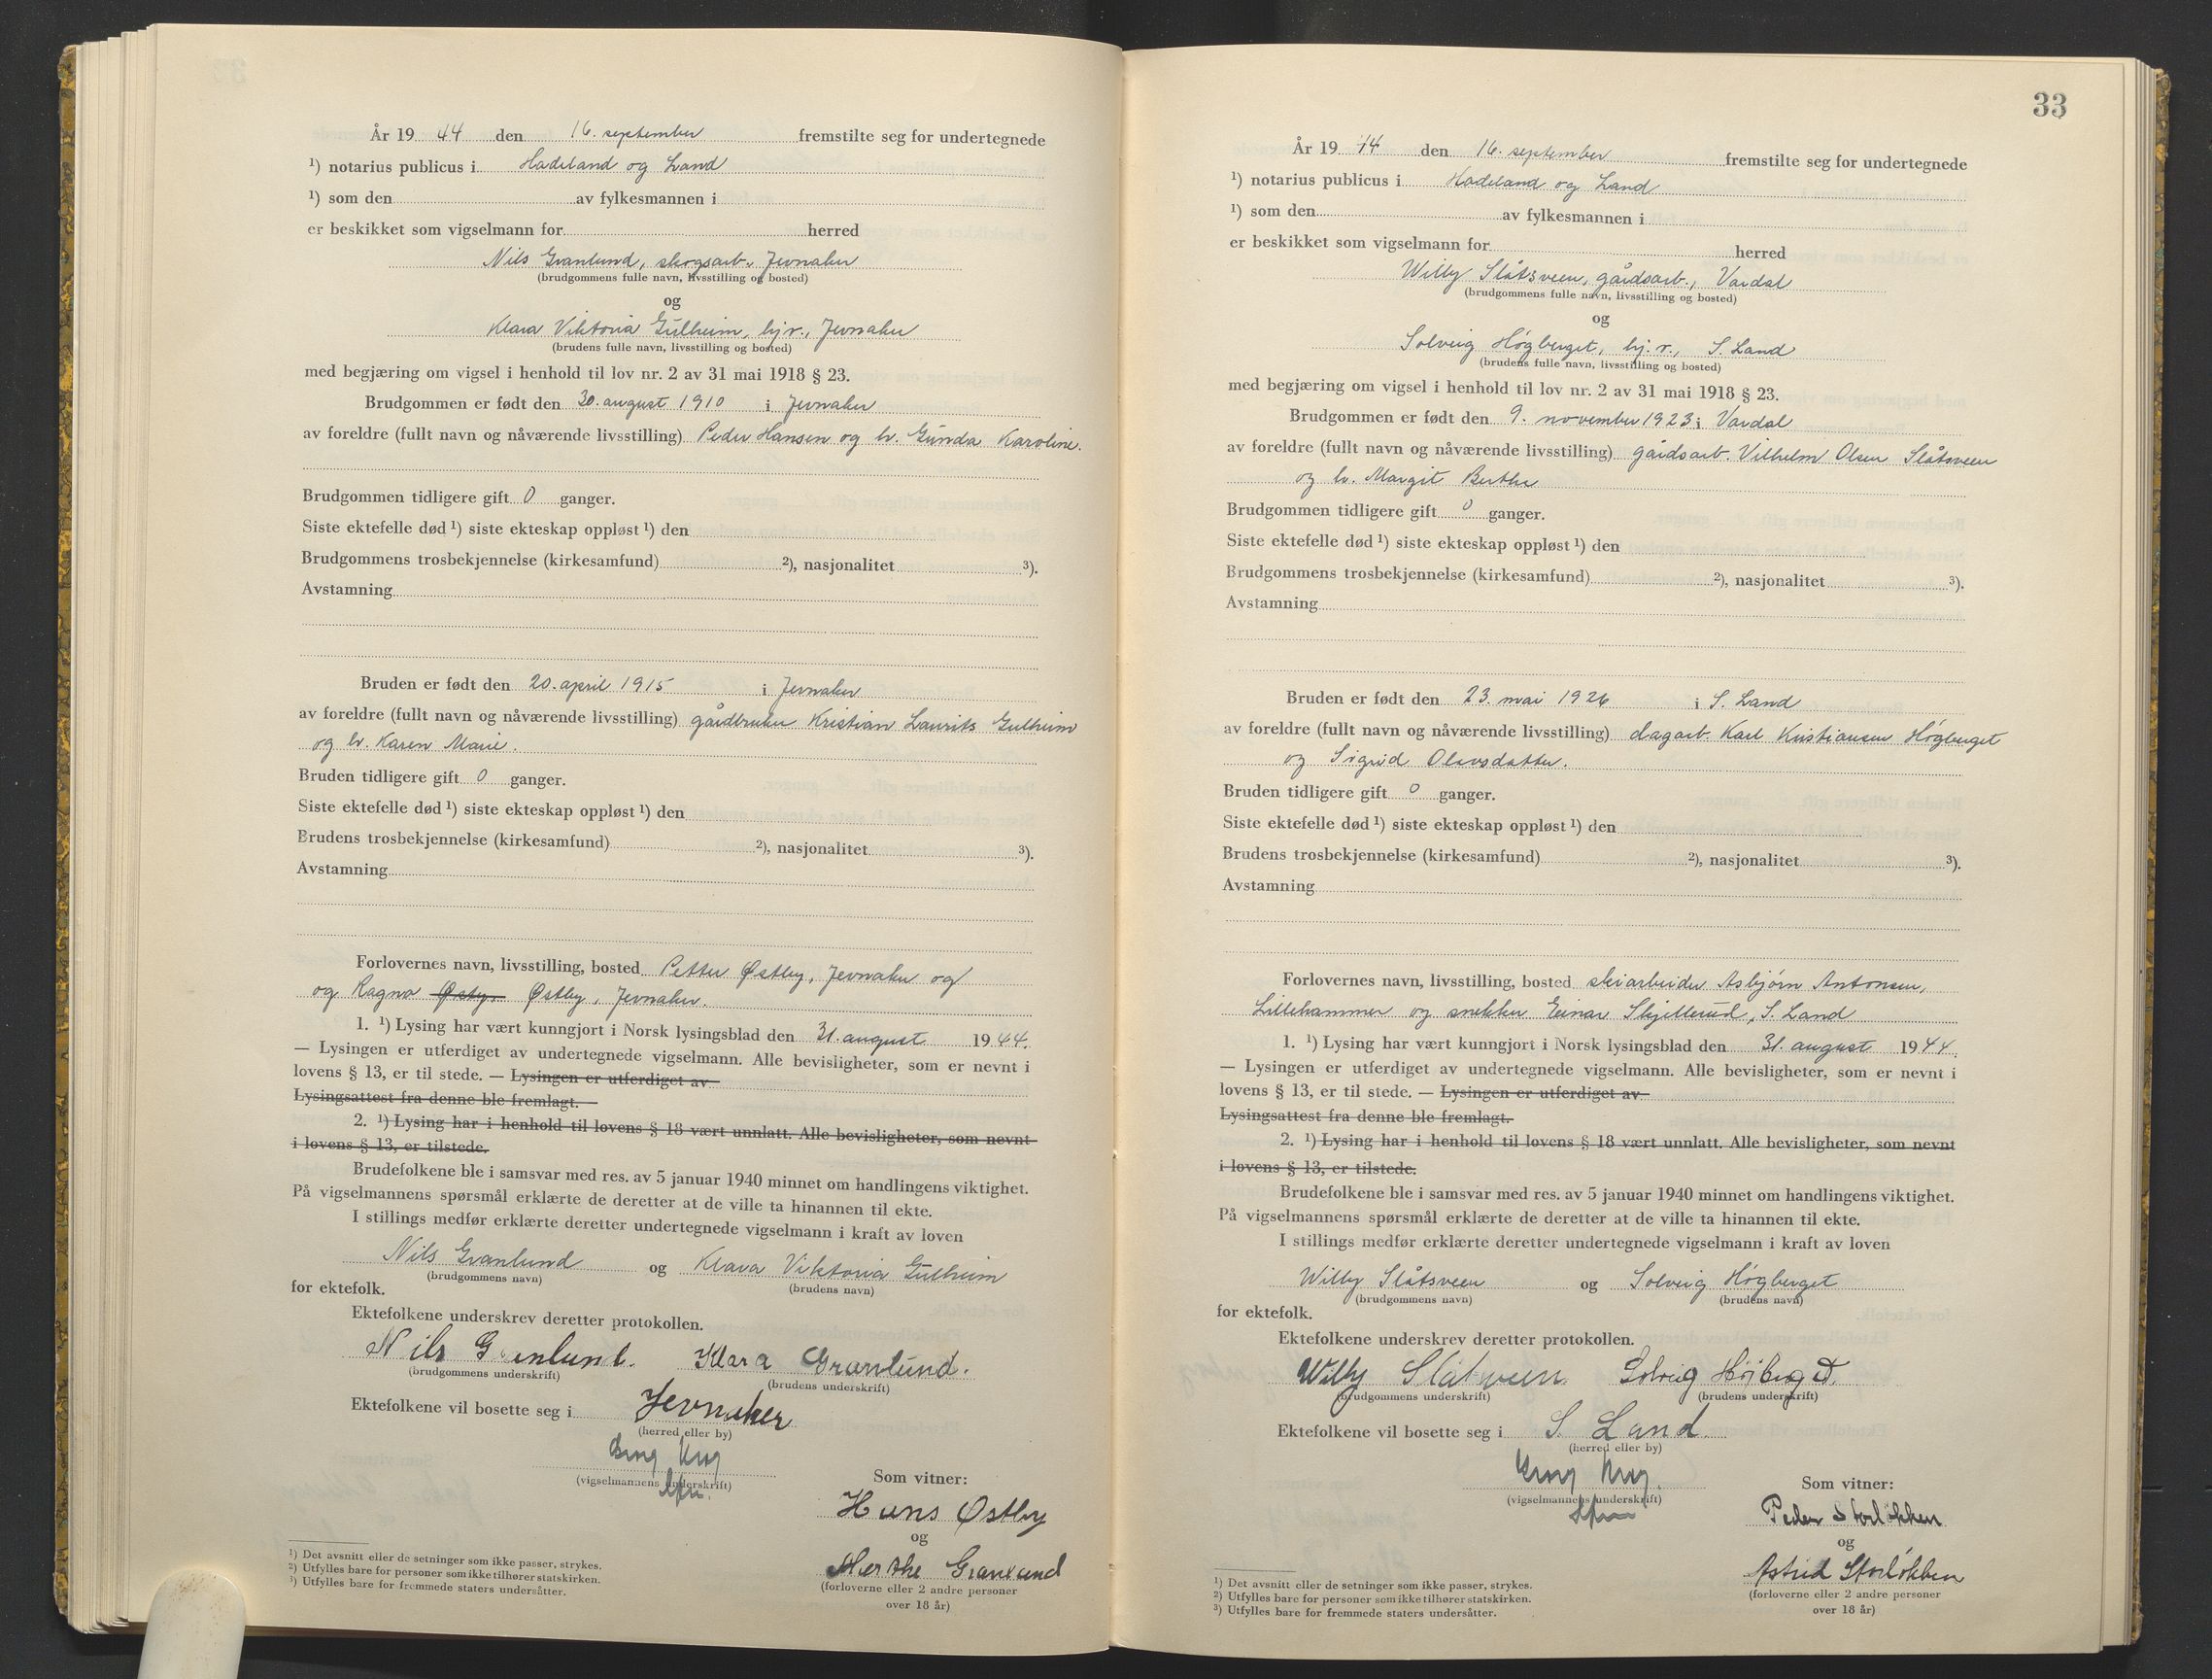 År 19 44 den 16. september fremstilte seg for undertegnede
¹) notarius publicus i Hadeland og Land
¹) som den av fylkesmannen i
er beskikket som vigselmann for herred
Nils Granlund, skogsarb., Jevnaker
(brudgommens fulle navn, livsstilling og bosted)
og
Klara Viktoria Gulheim, hj.v., Jevnaker
(brudens fulle navn, livsstilling og bosted)
med begjæring om vigsel i henhold til lov nr. 2 av 31 mai 1918 § 23.
Brudgommen er født den 30. august 1910 i Jevnaker
av foreldre (fullt navn og nåværende livsstilling) Peder Hansen og h. Gunda Karoline.
Brudgommen tidligere gift 0 ganger.
Siste ektefelle død ¹) siste ekteskap oppløst ¹) den
Brudgommens trosbekjennelse (kirkesamfund) ²), nasjonalitet ³).
Avstamning
Bruden er født den 20. april 1915 i Jevnaker
av foreldre (fullt navn og nåværende livsstilling) gårdbruker Kristian Laurits Gulheim
og h. Karen Marie.
Bruden tidligere gift 0 ganger.
Siste ektefelle død ¹) siste ekteskap oppløst ¹) den
Brudens trosbekjennelse (kirkesamfund) ²), nasjonalitet ³).
Avstamning
Forlovernes navn, livsstilling, bosted Petter Østby, Jevnaker og
og Ragna Østby, Jevnaker.
1. ¹) Lysing har vært kunngjort i Norsk lysingsblad den 31. august 1944.
— Lysingen er utferdiget av undertegnede vigselmann. Alle bevisligheter, som er nevnt i
lovens § 13, er til stede. — Lysingen er utferdiget av
Lysingsattest fra denne ble fremlagt. —
2. ¹) Lysing har i henhold til lovens § 18 vært unnlatt. Alle bevisligheter, som nevnt
i lovens § 13, er tilstede.
Brudefolkene ble i samsvar med res. av 5 januar 1940 minnet om handlingens viktighet.
På vigselmannens spørsmål erklærte de deretter at de ville ta hinannen til ekte.
I stillings medfør erklærte deretter undertegnede vigselmann i kraft av loven
Nils Granlund og Klara Viktoria Gulheim
(brudgommens navn) (brudens navn)
for ektefolk.
Ektefolkene underskrev deretter protokollen.
Nils Granlund. Klara Granlund.
(brudgommens underskrift) (brudens underskrift)
Ektefolkene vil bosette seg i Jevnaker
(herred eller by)
(vigselmannens underskrift)
Som vitner:
Hans Østby
og
Merthe Granlund
(forloverne eller 2 andre personer
over 18 år)
¹) Det avsnitt eller de setninger som ikke passer, strykes.
²) Utfylles bare for personer som ikke tilhører statskirken.
³) Utfylles bare for fremmede staters undersåtter.
33
År 19 44 den 16. september fremstilte seg for undertegnede
¹) notarius publicus i Hadeland og Land
¹) som den av fylkesmannen i
er beskikket som vigselmann for herred
Willy Slåtsveen, gårdsarb., Vardal
(brudgommens fulle navn, livsstilling og bosted)
og
Solveig Høgberget, hj. v., S. Land
(brudens fulle navn, livsstilling og bosted)
med begjæring om vigsel i henhold til lov nr. 2 av 31 mai 1918 § 23.
Brudgommen er født den 9. november 1923 i Vardal
av foreldre (fullt navn og nåværende livsstilling) gårdsarb. Vilhelm Olsen Slåtsveen
og h. Margit Berthe
Brudgommen tidligere gift 0 ganger.
Siste ektefelle død ¹) siste ekteskap oppløst ¹) den
Brudgommens trosbekjennelse (kirkesamfund) ²), nasjonalitet ³).
Avstamning
Bruden er født den 23. mai 1926 i S. Land
av foreldre (fullt navn og nåværende livsstilling) dagarb. Karl Kristiansen Høgberget
og Sigrid Olavsdatter.
Bruden tidligere gift 0 ganger.
Siste ektefelle død ¹) siste ekteskap oppløst ¹) den
Brudens trosbekjennelse (kirkesamfund) ²), nasjonalitet ³).
Avstamning
Forlovernes navn, livsstilling, bosted skiarbeider Asbjørn Antonsen,
Lillehammer og snekker Einar Skjillerud, S. Land
1. ¹) Lysing har vært kunngjort i Norsk lysingsblad den 31. august 1944.
— Lysingen er utferdiget av undertegnede vigselmann. Alle bevisligheter, som er nevnt i
lovens § 13, er til stede. — Lysingen er utferdiget av
Lysingsattest fra denne ble fremlagt.
2. ¹) Lysing har i henhold til lovens § 18 vært unnlatt. Alle bevisligheter, som nevnt
i lovens § 13, er tilstede.
Brudefolkene ble i samsvar med res. av 5 januar 1940 minnet om handlingens viktighet.
På vigselmannens spørsmål erklærte de deretter at de ville ta hinannen til ekte.
I stillings medfør erklærte deretter undertegnede vigselmann i kraft av loven
Willy Slåtsveen og Solveig Høgberget
(brudgommens navn) (brudens navn)
for ektefolk.
Ektefolkene underskrev deretter protokollen.
Willy Slåtsveen Solveig Højberget.
(brudgommens underskrift) (brudens underskrift)
Ektefolkene vil bosette seg i S. Land.
(herred eller by)
(vigselmannens underskrift)
Som vitner:
Peder Storløkken
og
Astrid Storløkken
(forloverne eller 2 andre personer
over 18 år)
¹) Det avsnitt eller de setninger som ikke passer, strykes.
²) Utfylles bare for personer som ikke tilhører statskirken.
³) Utfylles bare for fremmede staters undersåtter.